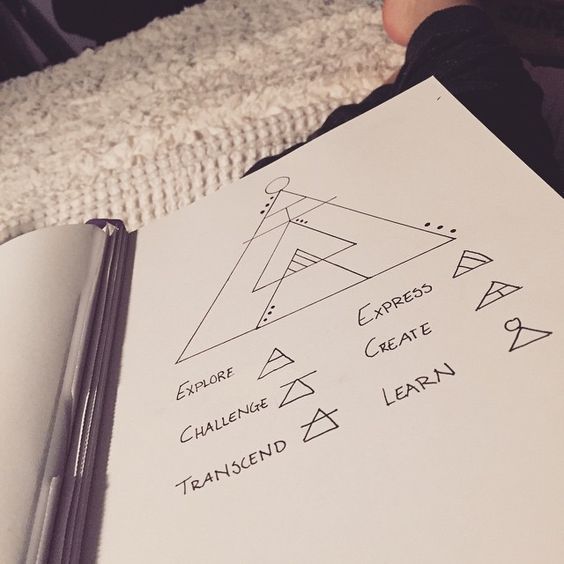 EXPLORE
CHALLENGE
TRANSCEND
EXPRESS
CREATE
LEARN